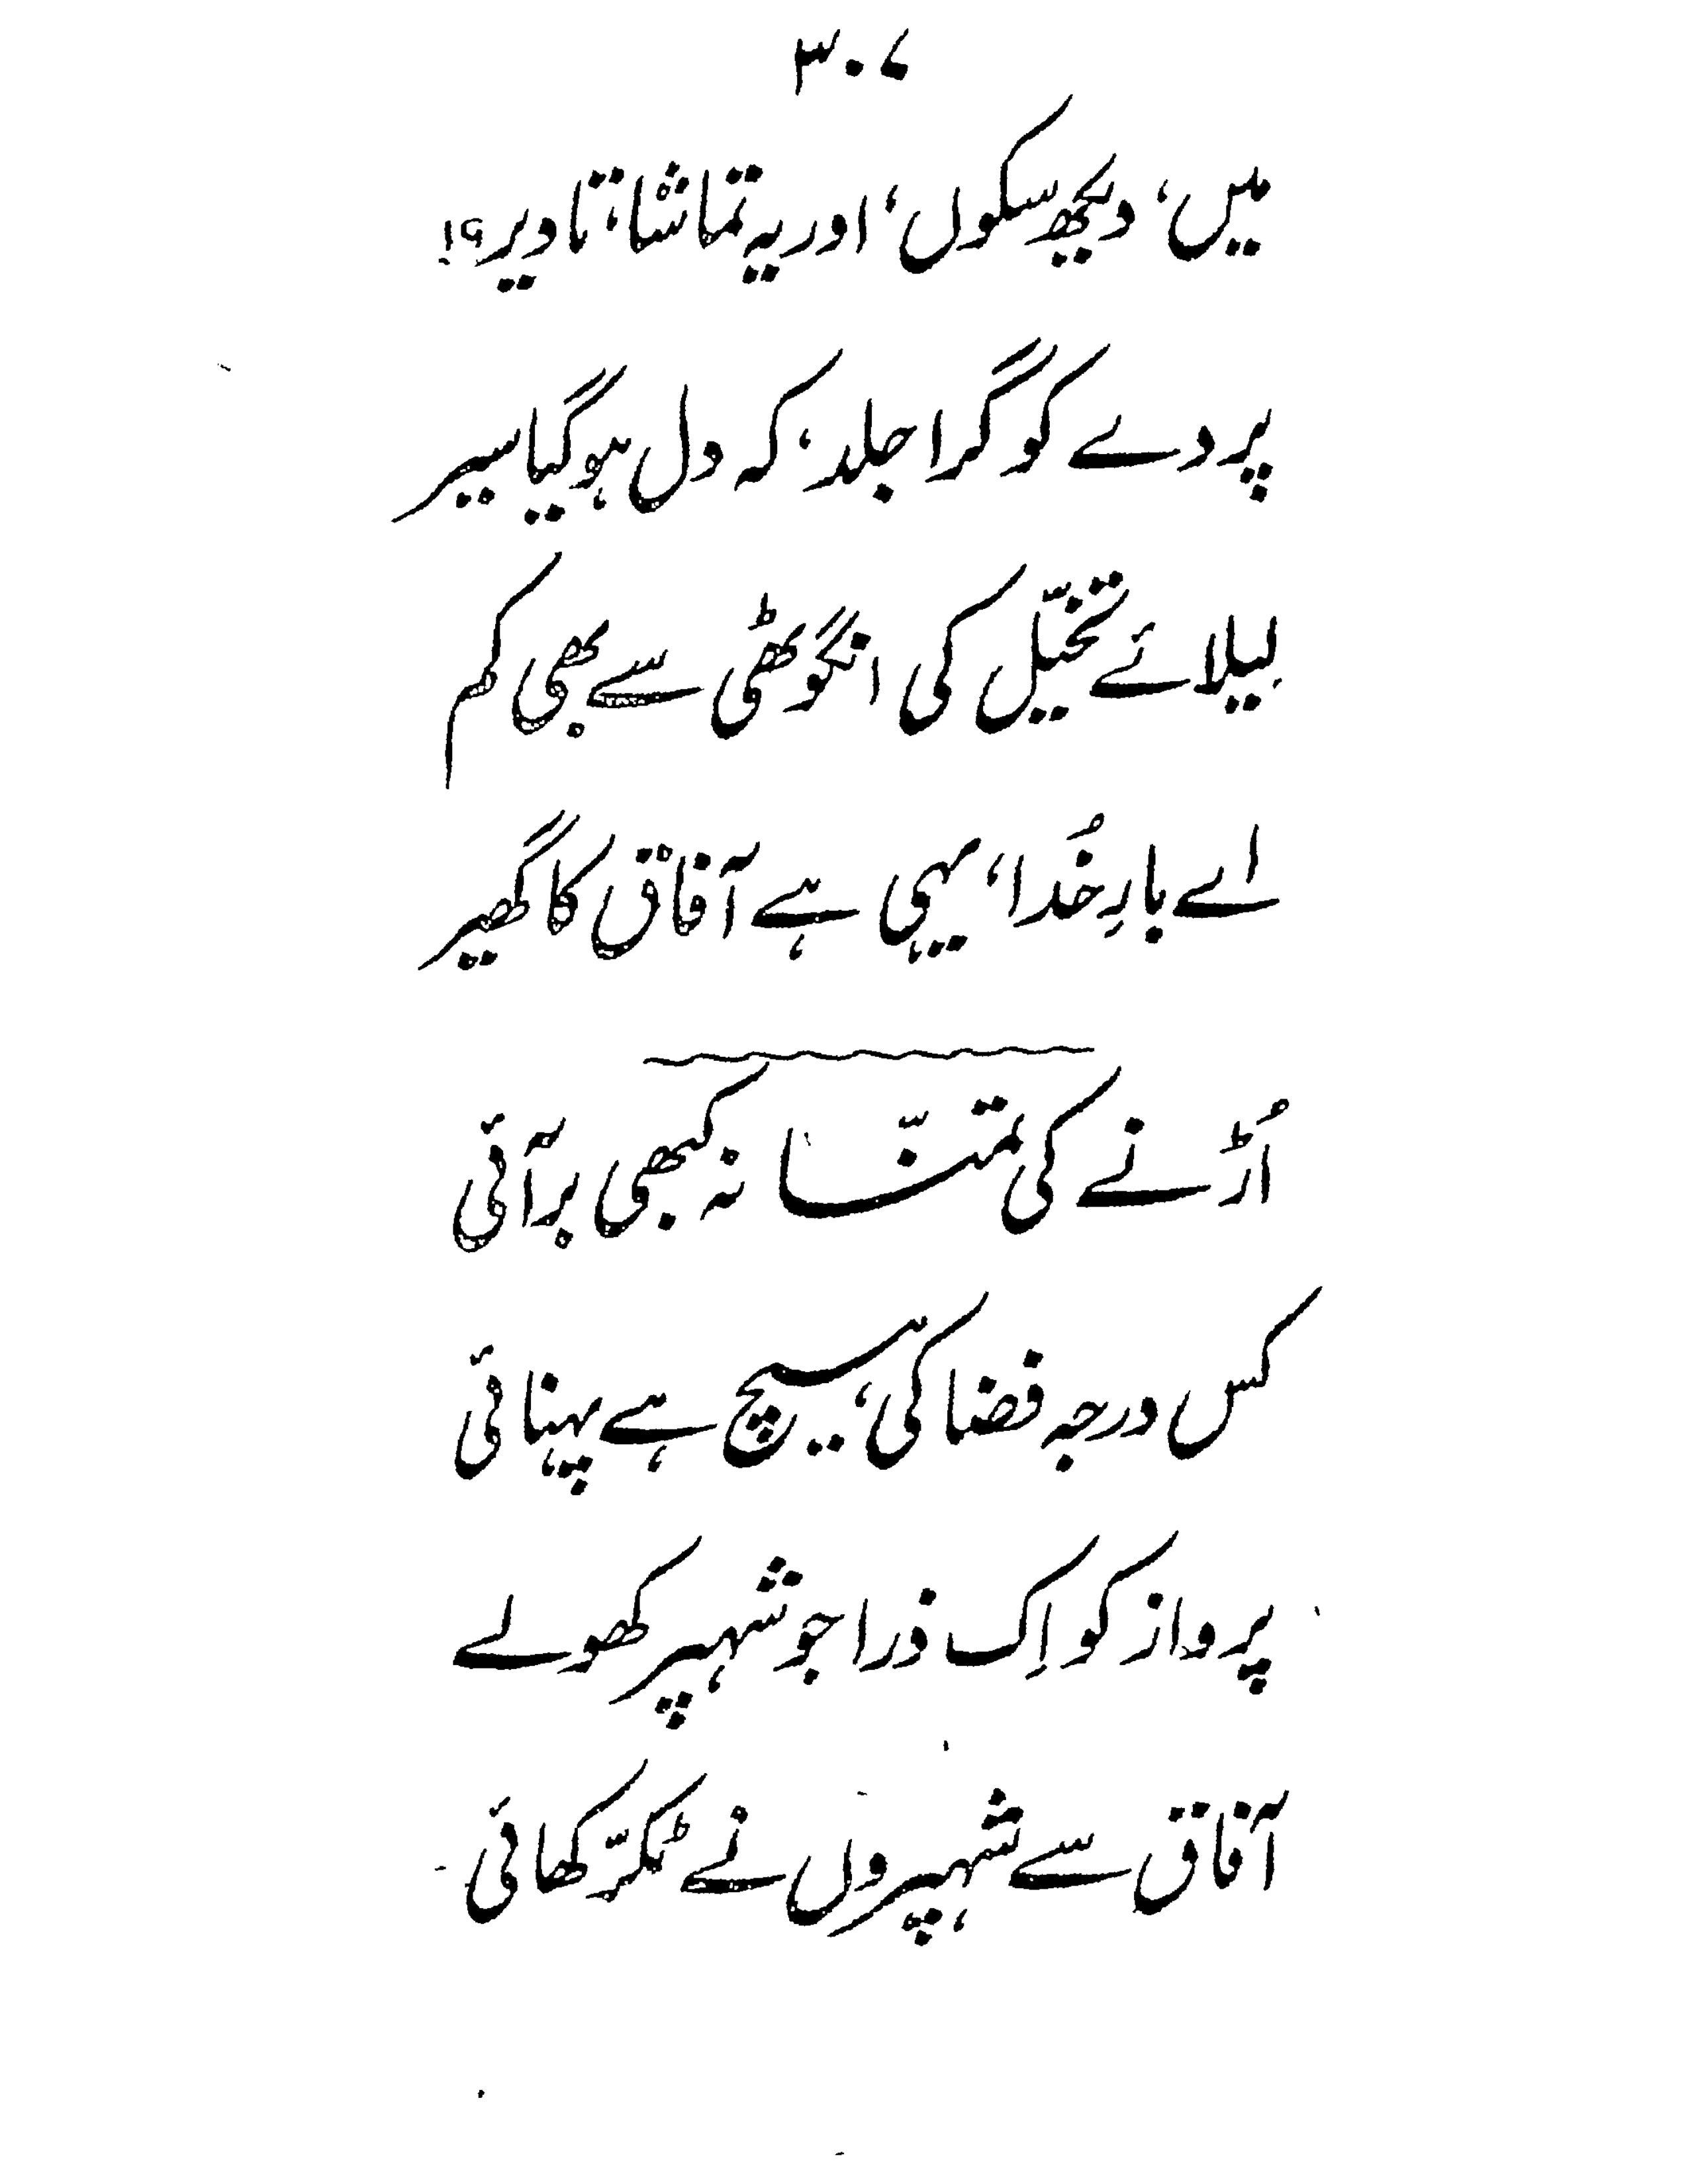 ۳۰۷
میں، دیکھ سکوں، اور یہ تماشا، تا دیر؟!
پردے کو گرا جلد، کہ دل ہو گیا سیر
لیلائے تخیّل کی انگوٹھی سے بھی کم
اے بارِ خُدا، یہی ہے آفاق کا گھیر
اُڑنے کی تمنّا نہ کبھی بر آئی
کس درجہ فضا کی، ہیچ ہے پہنائی
پرواز کو اِک ذرا جو شہپر کھولے
آفاق سے شہپروں نے ٹکّر کھائی